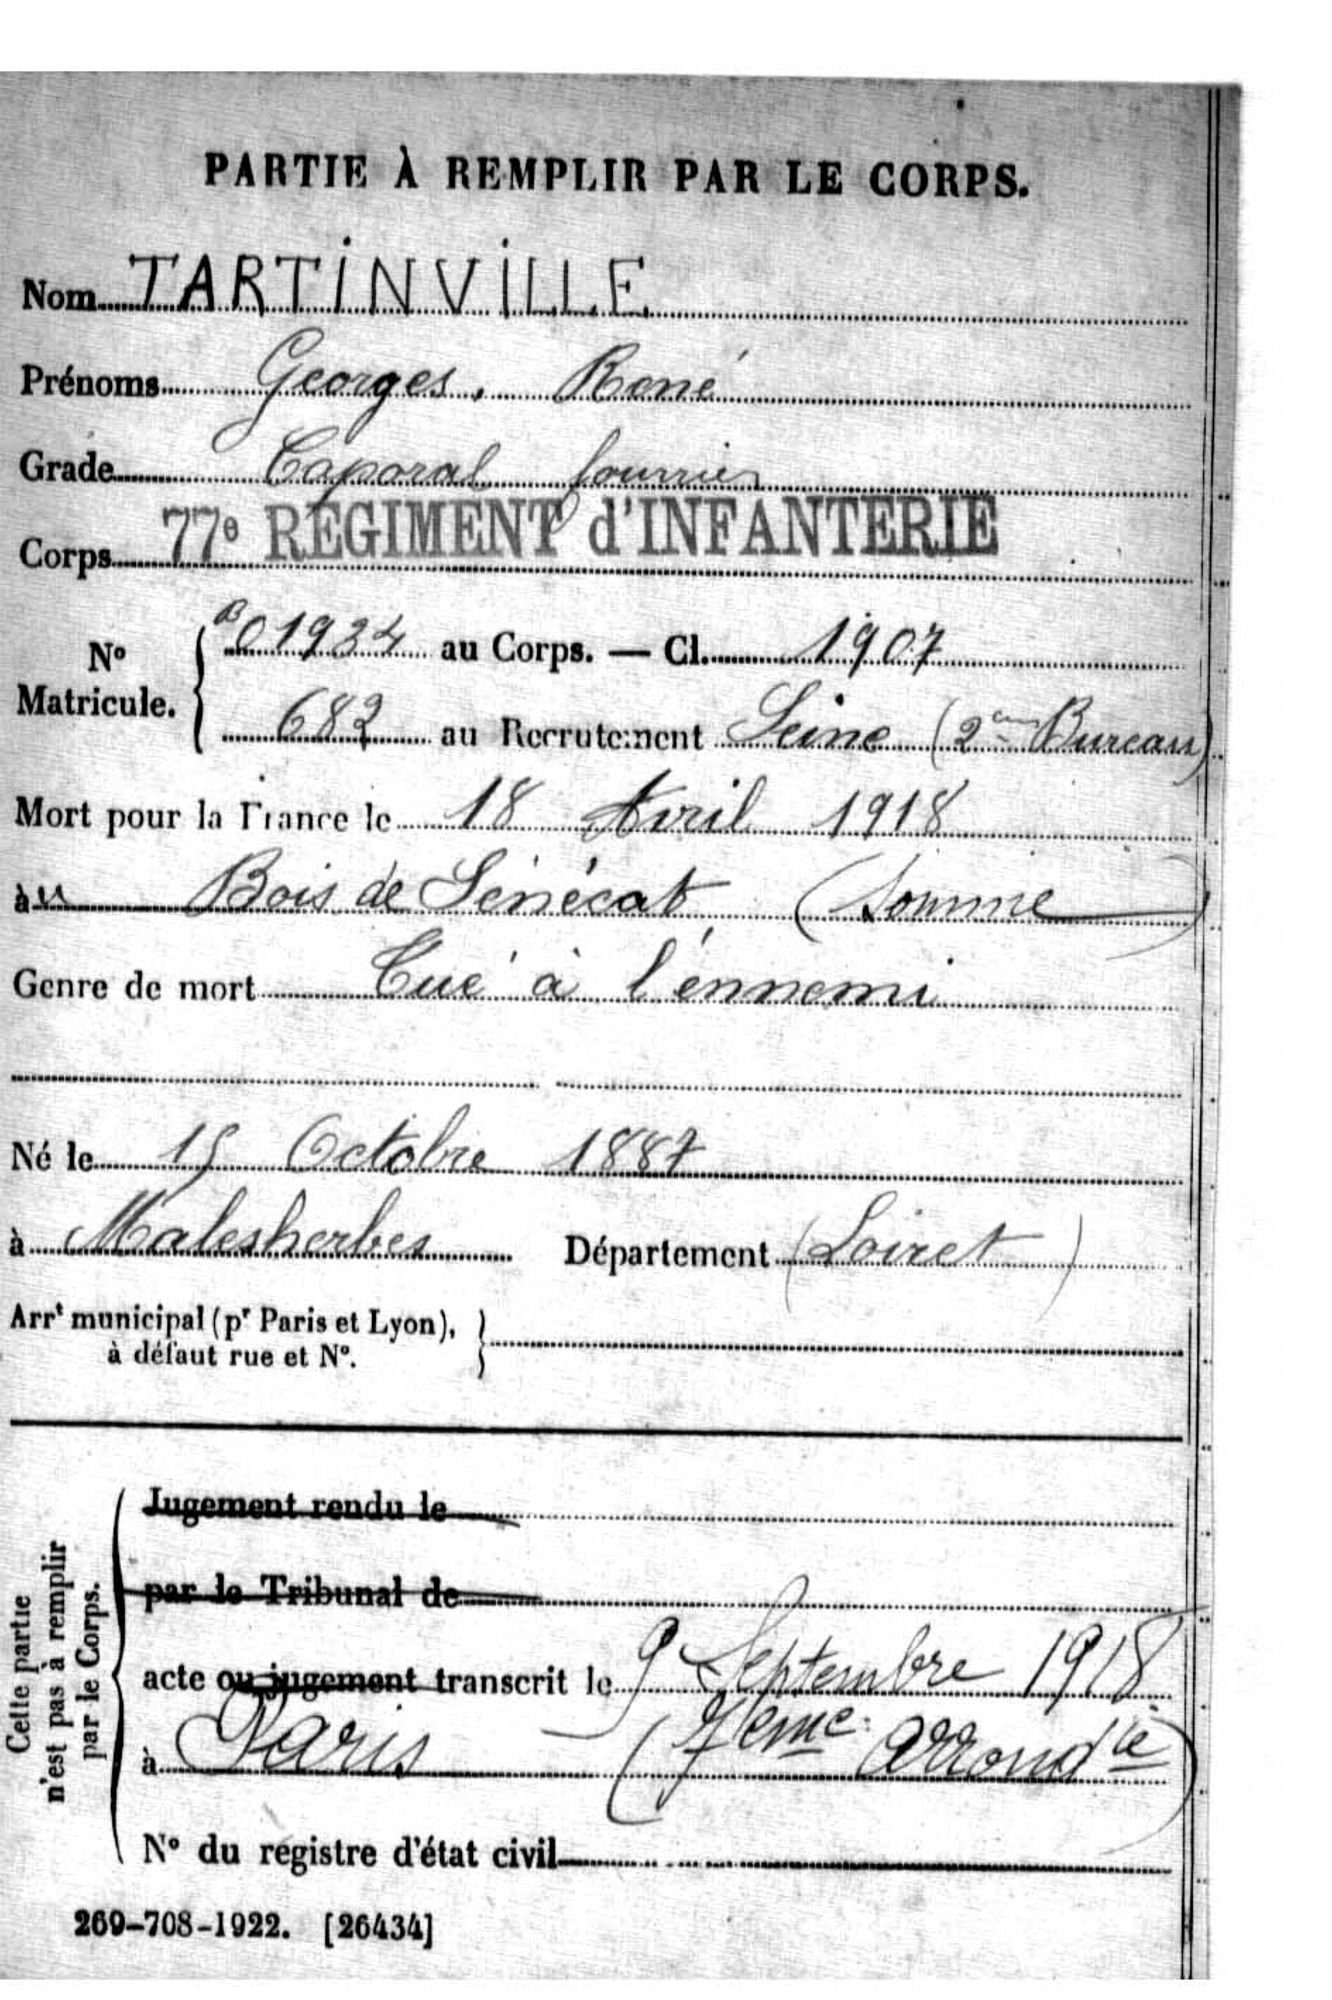 PARTIE À REMPLIR PAR LE CORPS.
Nom TARTINVILLE
Prénoms Georges, René
Grade Caporal fourrier
Corps 77e REGIMENT d'INFANTERIE
No Matricule. { B01934 au Corps. — Cl. 1907
682 au Recrutement Seine (2eme Bureau)
Mort pour la France le 18 Avril 1918
àu Bois de Sénécat (Somme)
Genre de mort Tué à l'énnemi
Né le 15 Octobre 1887
à Malesherbes Département (Loiret)
Arrt municipal (pr Paris et Lyon),
à défaut rue et No.
Cette partie
n'est pas à remplir
par le Corps.
Jugement rendu le
par le Tribunal de
acte ou jugement transcrit le 9 Septembre 1918
à Paris (7eme arrondt)
No du registre d'état civil
269-708-1922. [26434]